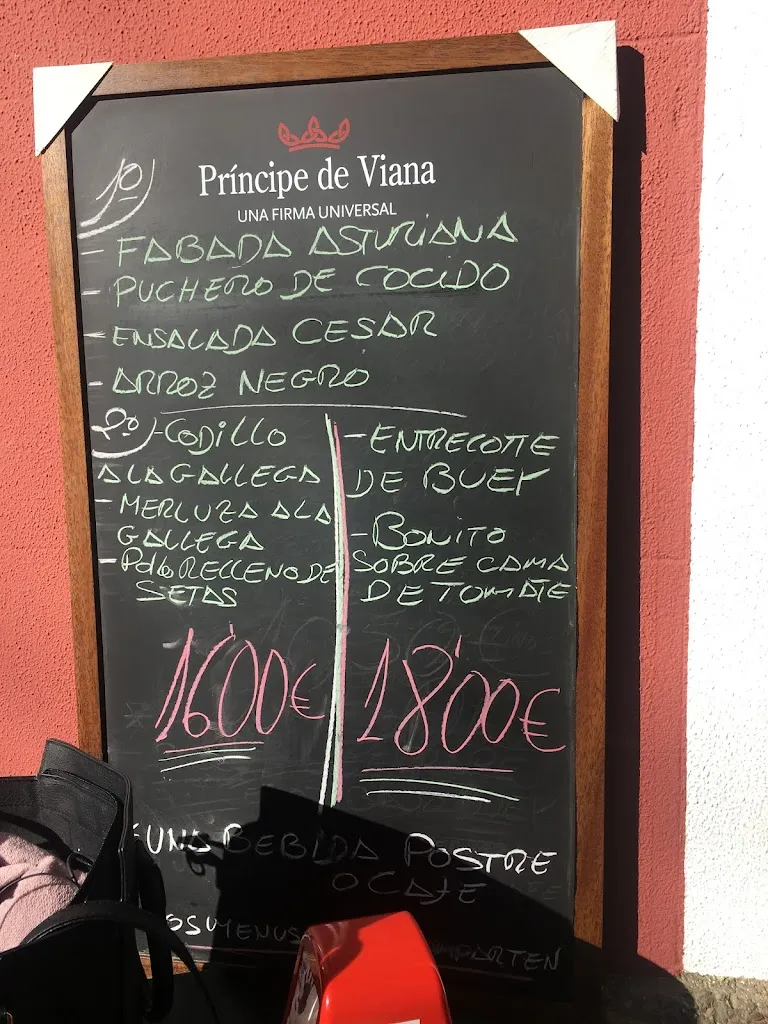 Príncipe de Viana
UNA FIRMA UNIVERSAL
1º
- FABADA ASTURIANA
- PUCHERO DE COCIDO
- ENSALADA CESAR
- ARROZ NEGRO
2º - CODILLO
A LA GALLEGA
- MERLUZA A LA
GALLEGA
- POLLO RELLENO DE
SETAS
16'00€
- ENTRECOTTE
DE BUEY
- BONITO
SOBRE CAMA
DE TOMATE
18'00€
UNA BEBIDA POSTRE
O CAFE
OS MENUS
MPARTEN